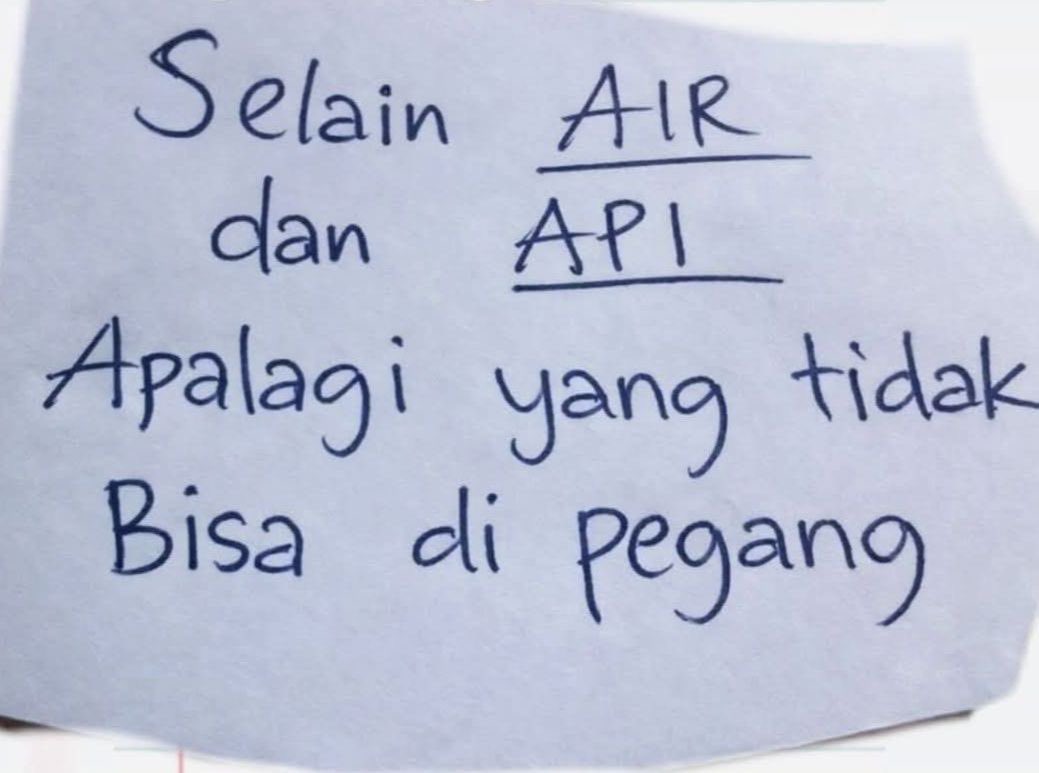 Selain AIR
dan API
Apalagi yang tidak
Bisa di pegang